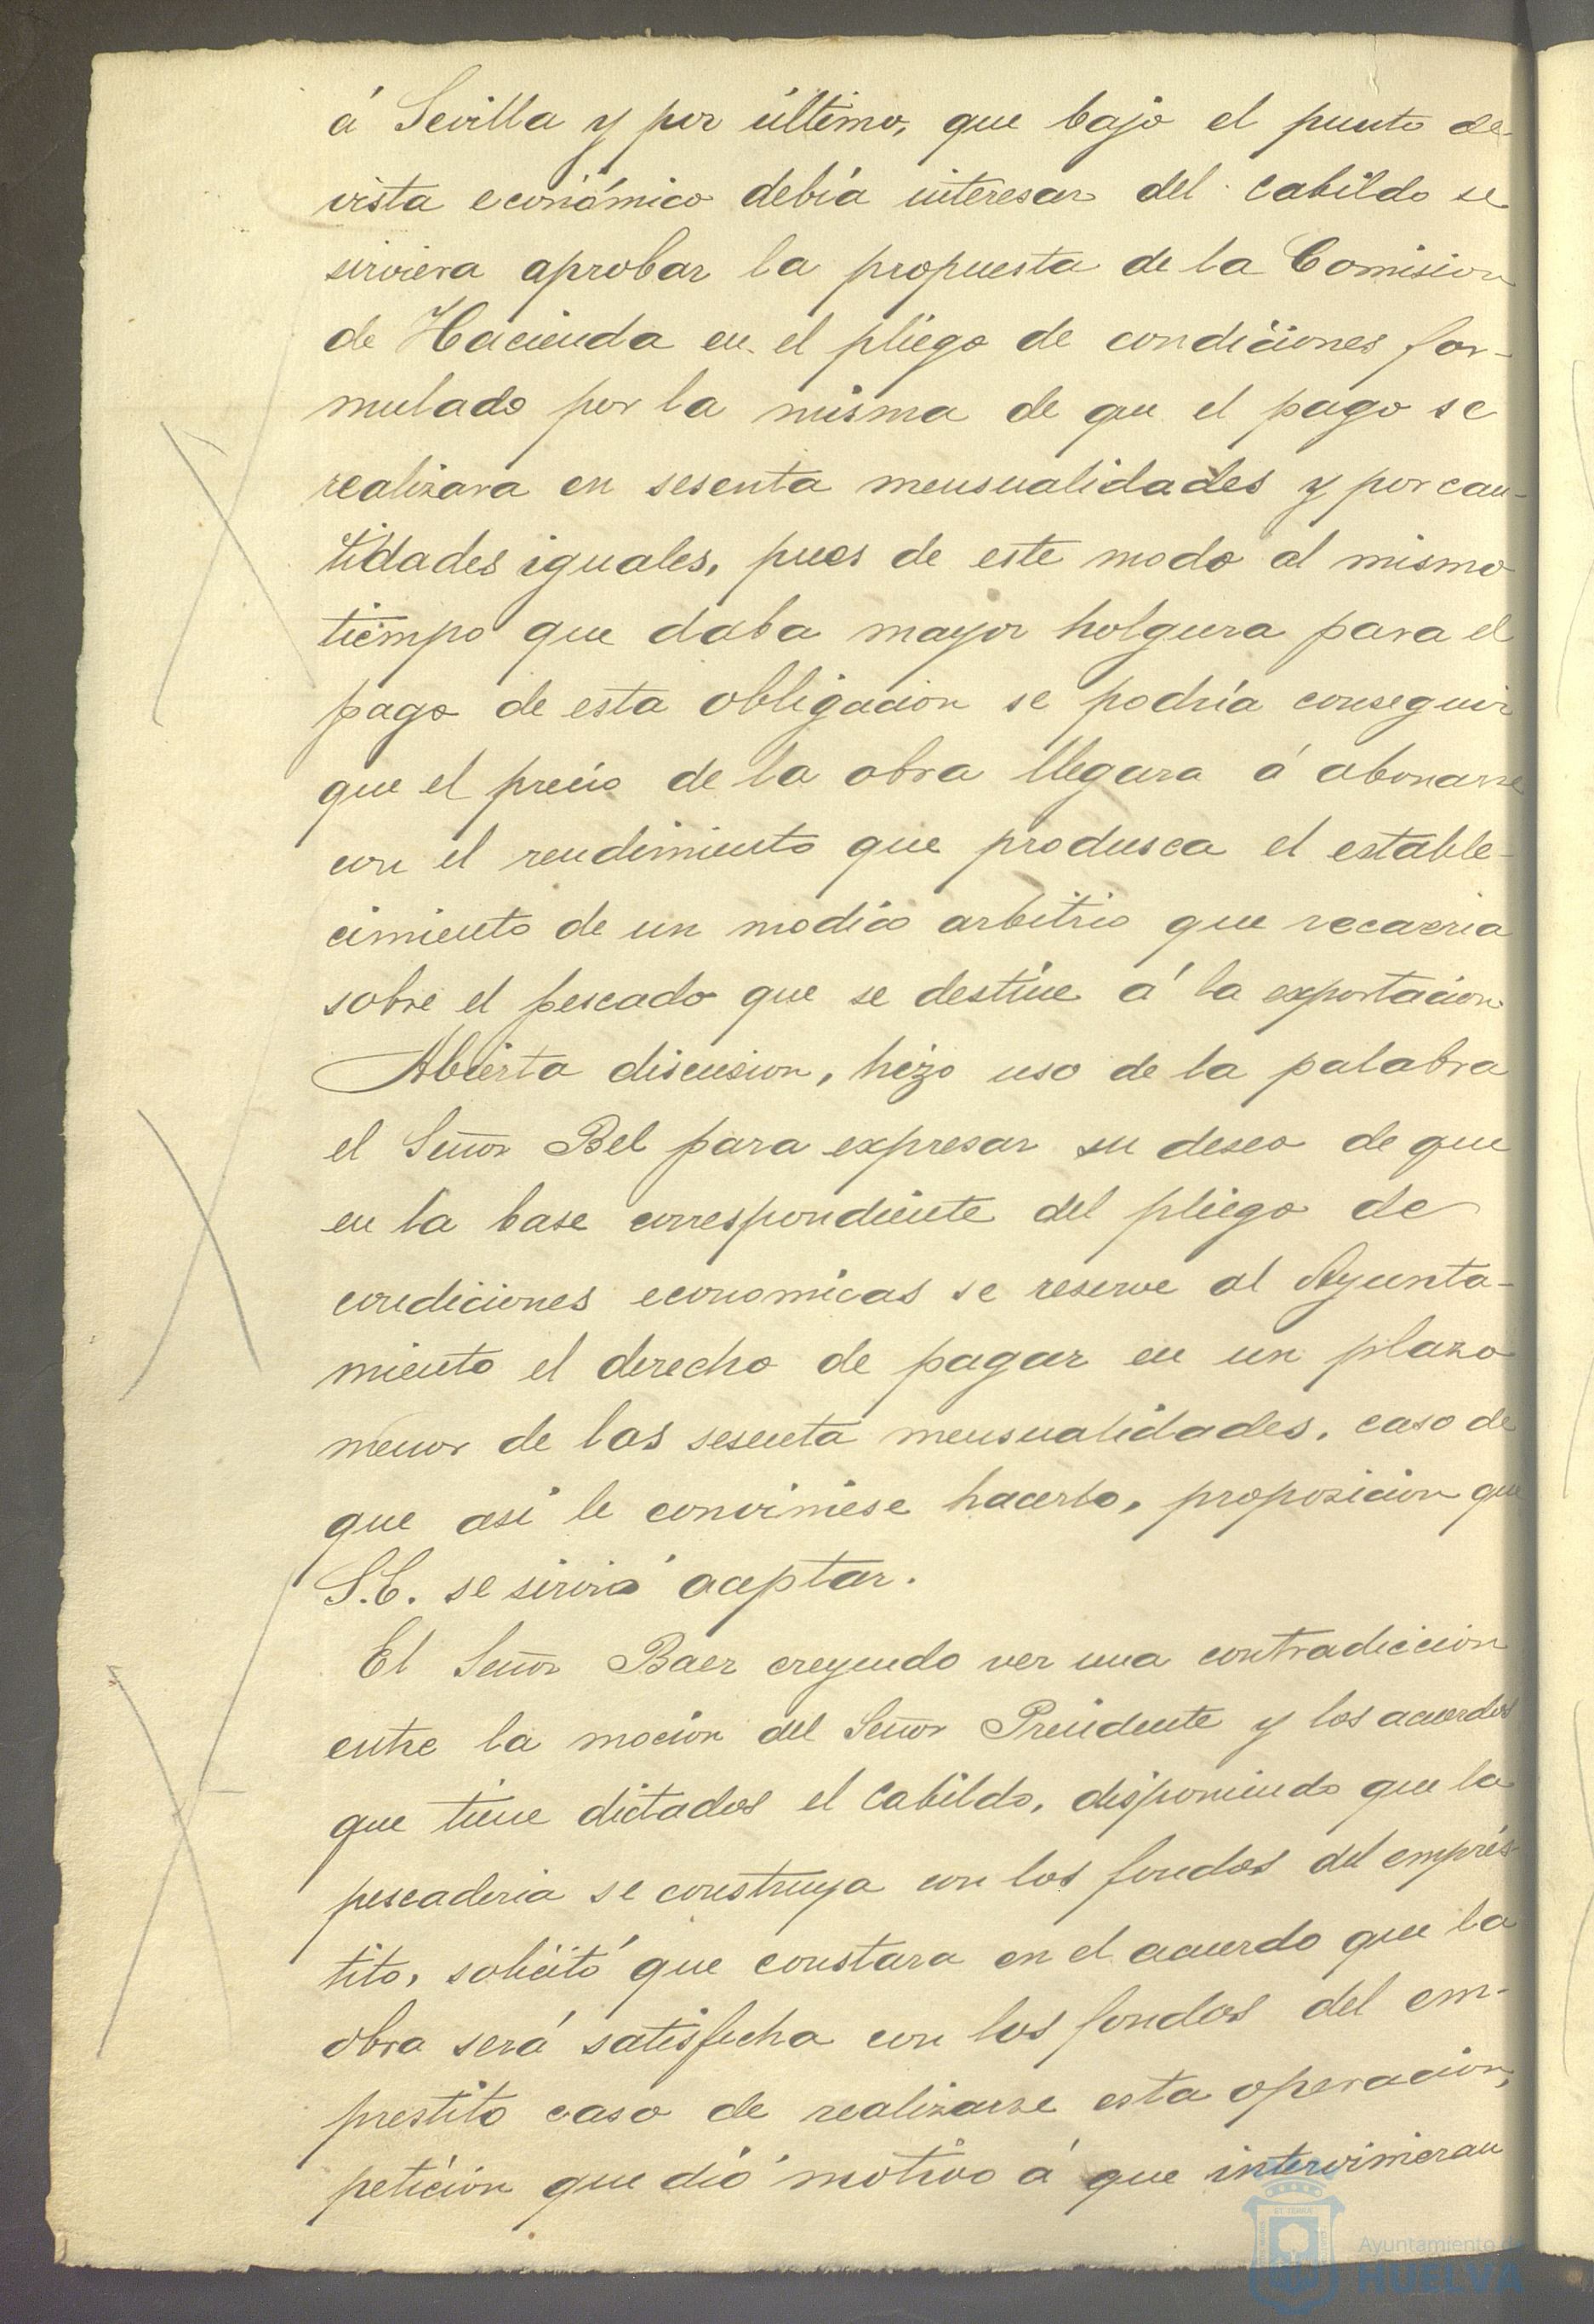 á Sevilla y por último, que bajo el punto de
vista económico debía interesar del cabildo se
sirviera aprobar la propuesta de la Comision
de Hacienda en el pliego de condiciones for-
mulado por la misma de que el pago se
realizara en sesenta mensualidades y por can-
tidades iguales, pues de este modo al mismo
tiempo que daba mayor holgura para el
pago de esta obligacion se podría conseguir
que el precio de la obra llegara á abonarse
con el rendimiento que produsca el estable-
cimiento de un modico arbitrio que recaeria
sobre el pescado que se destine á la exportacion
Abierta discusion, hizo uso de la palabra
el Señor Bel para expresar su deseo de que
en la base correspondiente del pliego de
condiciones economicas se reserve al Ayunta-
miento el derecho de pagar en un plazo
menor de las sesenta mensualidades, caso de
que asi le conviniese hacerlo, proposicion que
S.E. se sirvió aceptar.
El Señor Baer creyendo ver una contradiccion
entre la mocion del Señor Presidente y los acuerdos
que tiene dictados el Cabildo, disponiendo que la
pescaderia se construya con los fondos del emprés-
tito, solicitó que constara en el acuerdo que la
obra será satisfecha con los fondos del em-
prestito caso de realizarse esta operacion,
peticion que dió motivo á que intervinieran
Ayuntamiento de
HUELVA